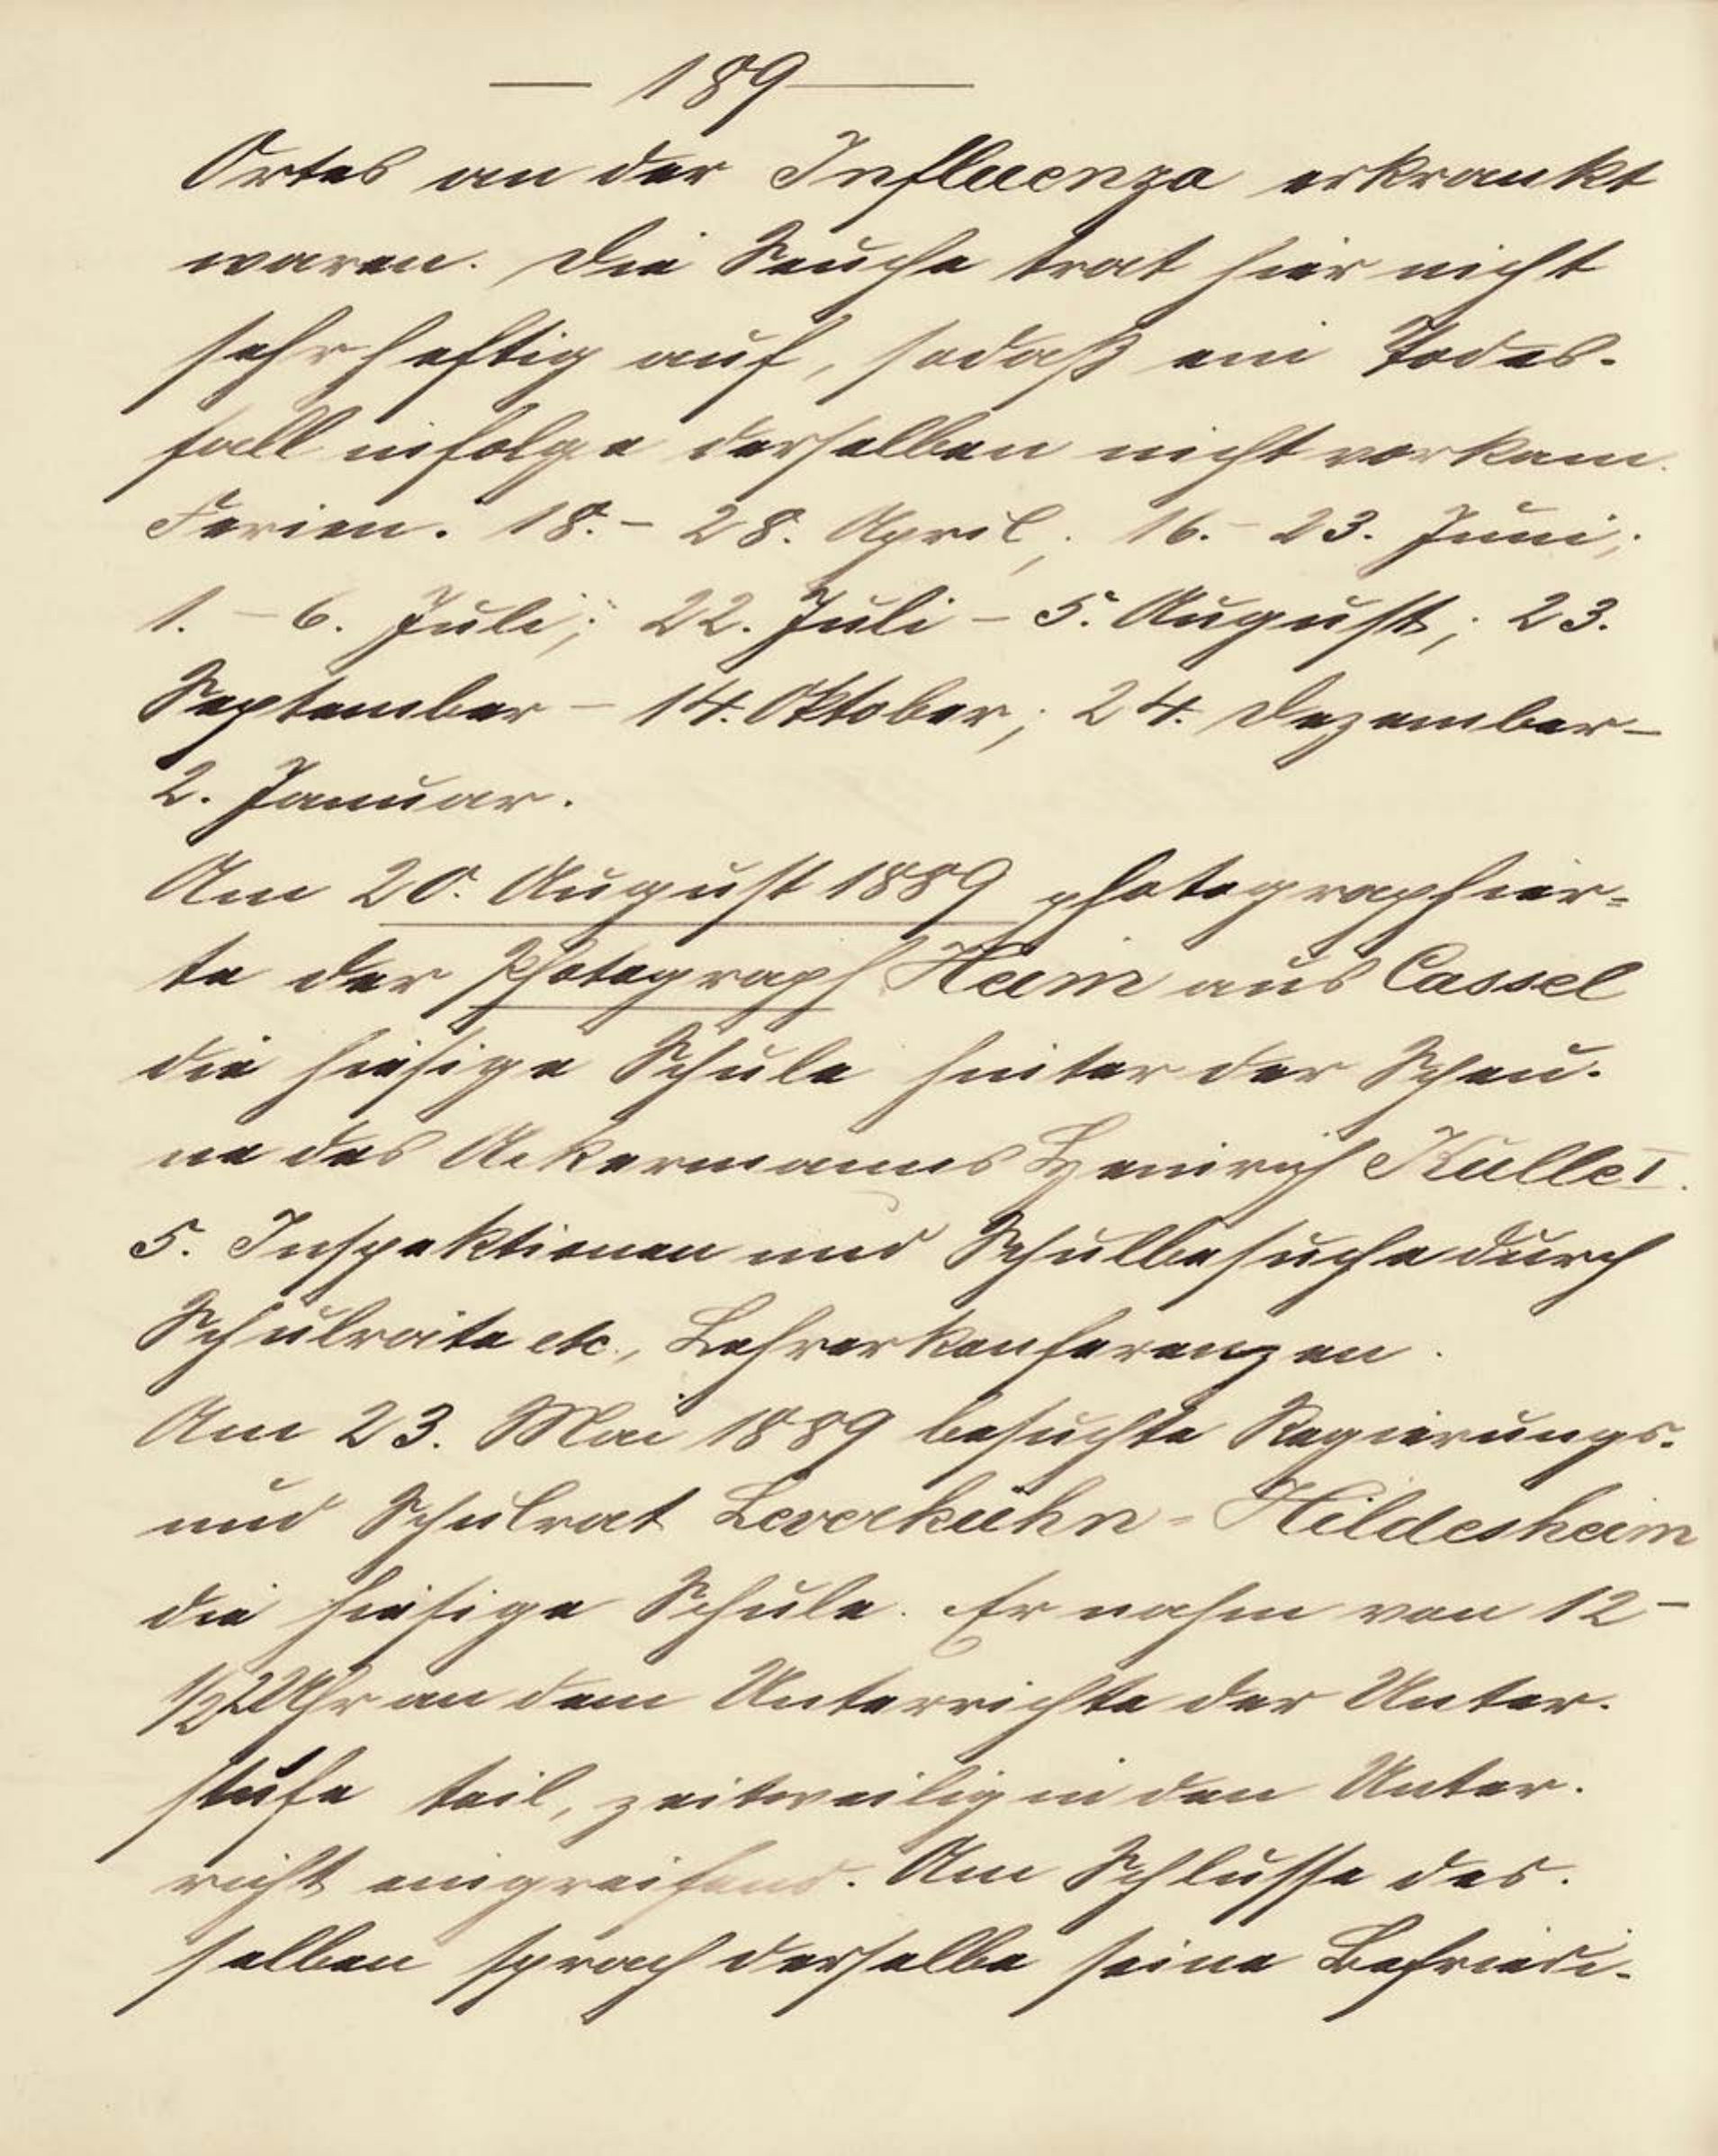 — 189 —
Ortes an der Influenza erkrankt
waren. Die Seuche trat hier nicht
sehr heftig auf, sodaß ein Todes-
fall infolge derselben nicht vorkam.
Ferien. 18. – 28. April; 16. – 23. Juni;
1. – 6. Juli; 22. Juli – 5. August; 23.
September – 14. Oktober; 24. Dezember –
2. Januar.
Am 20. August 1889 photographier-
te der Photograph Heim aus Cassel
die hiesige Schule hinter der Scheu-
ne des Ackermanns Heinrich Kulle I.
5. Inspektionen und Schulbesuche durch
Schulräte etc., Lehrerkonferenzen.
Am 23. Mai 1889 besuchte Regierungs-
und Schulrat Leverkühn-Hildesheim
die hiesige Schule. Er nahm von 12 –
1/2 2 Uhr an dem Unterrichte der Unter-
stufe teil, zeitweilig in den Unter-
richt eingreifend. Am Schlusse des-
selben sprach derselbe seine Befriedi-